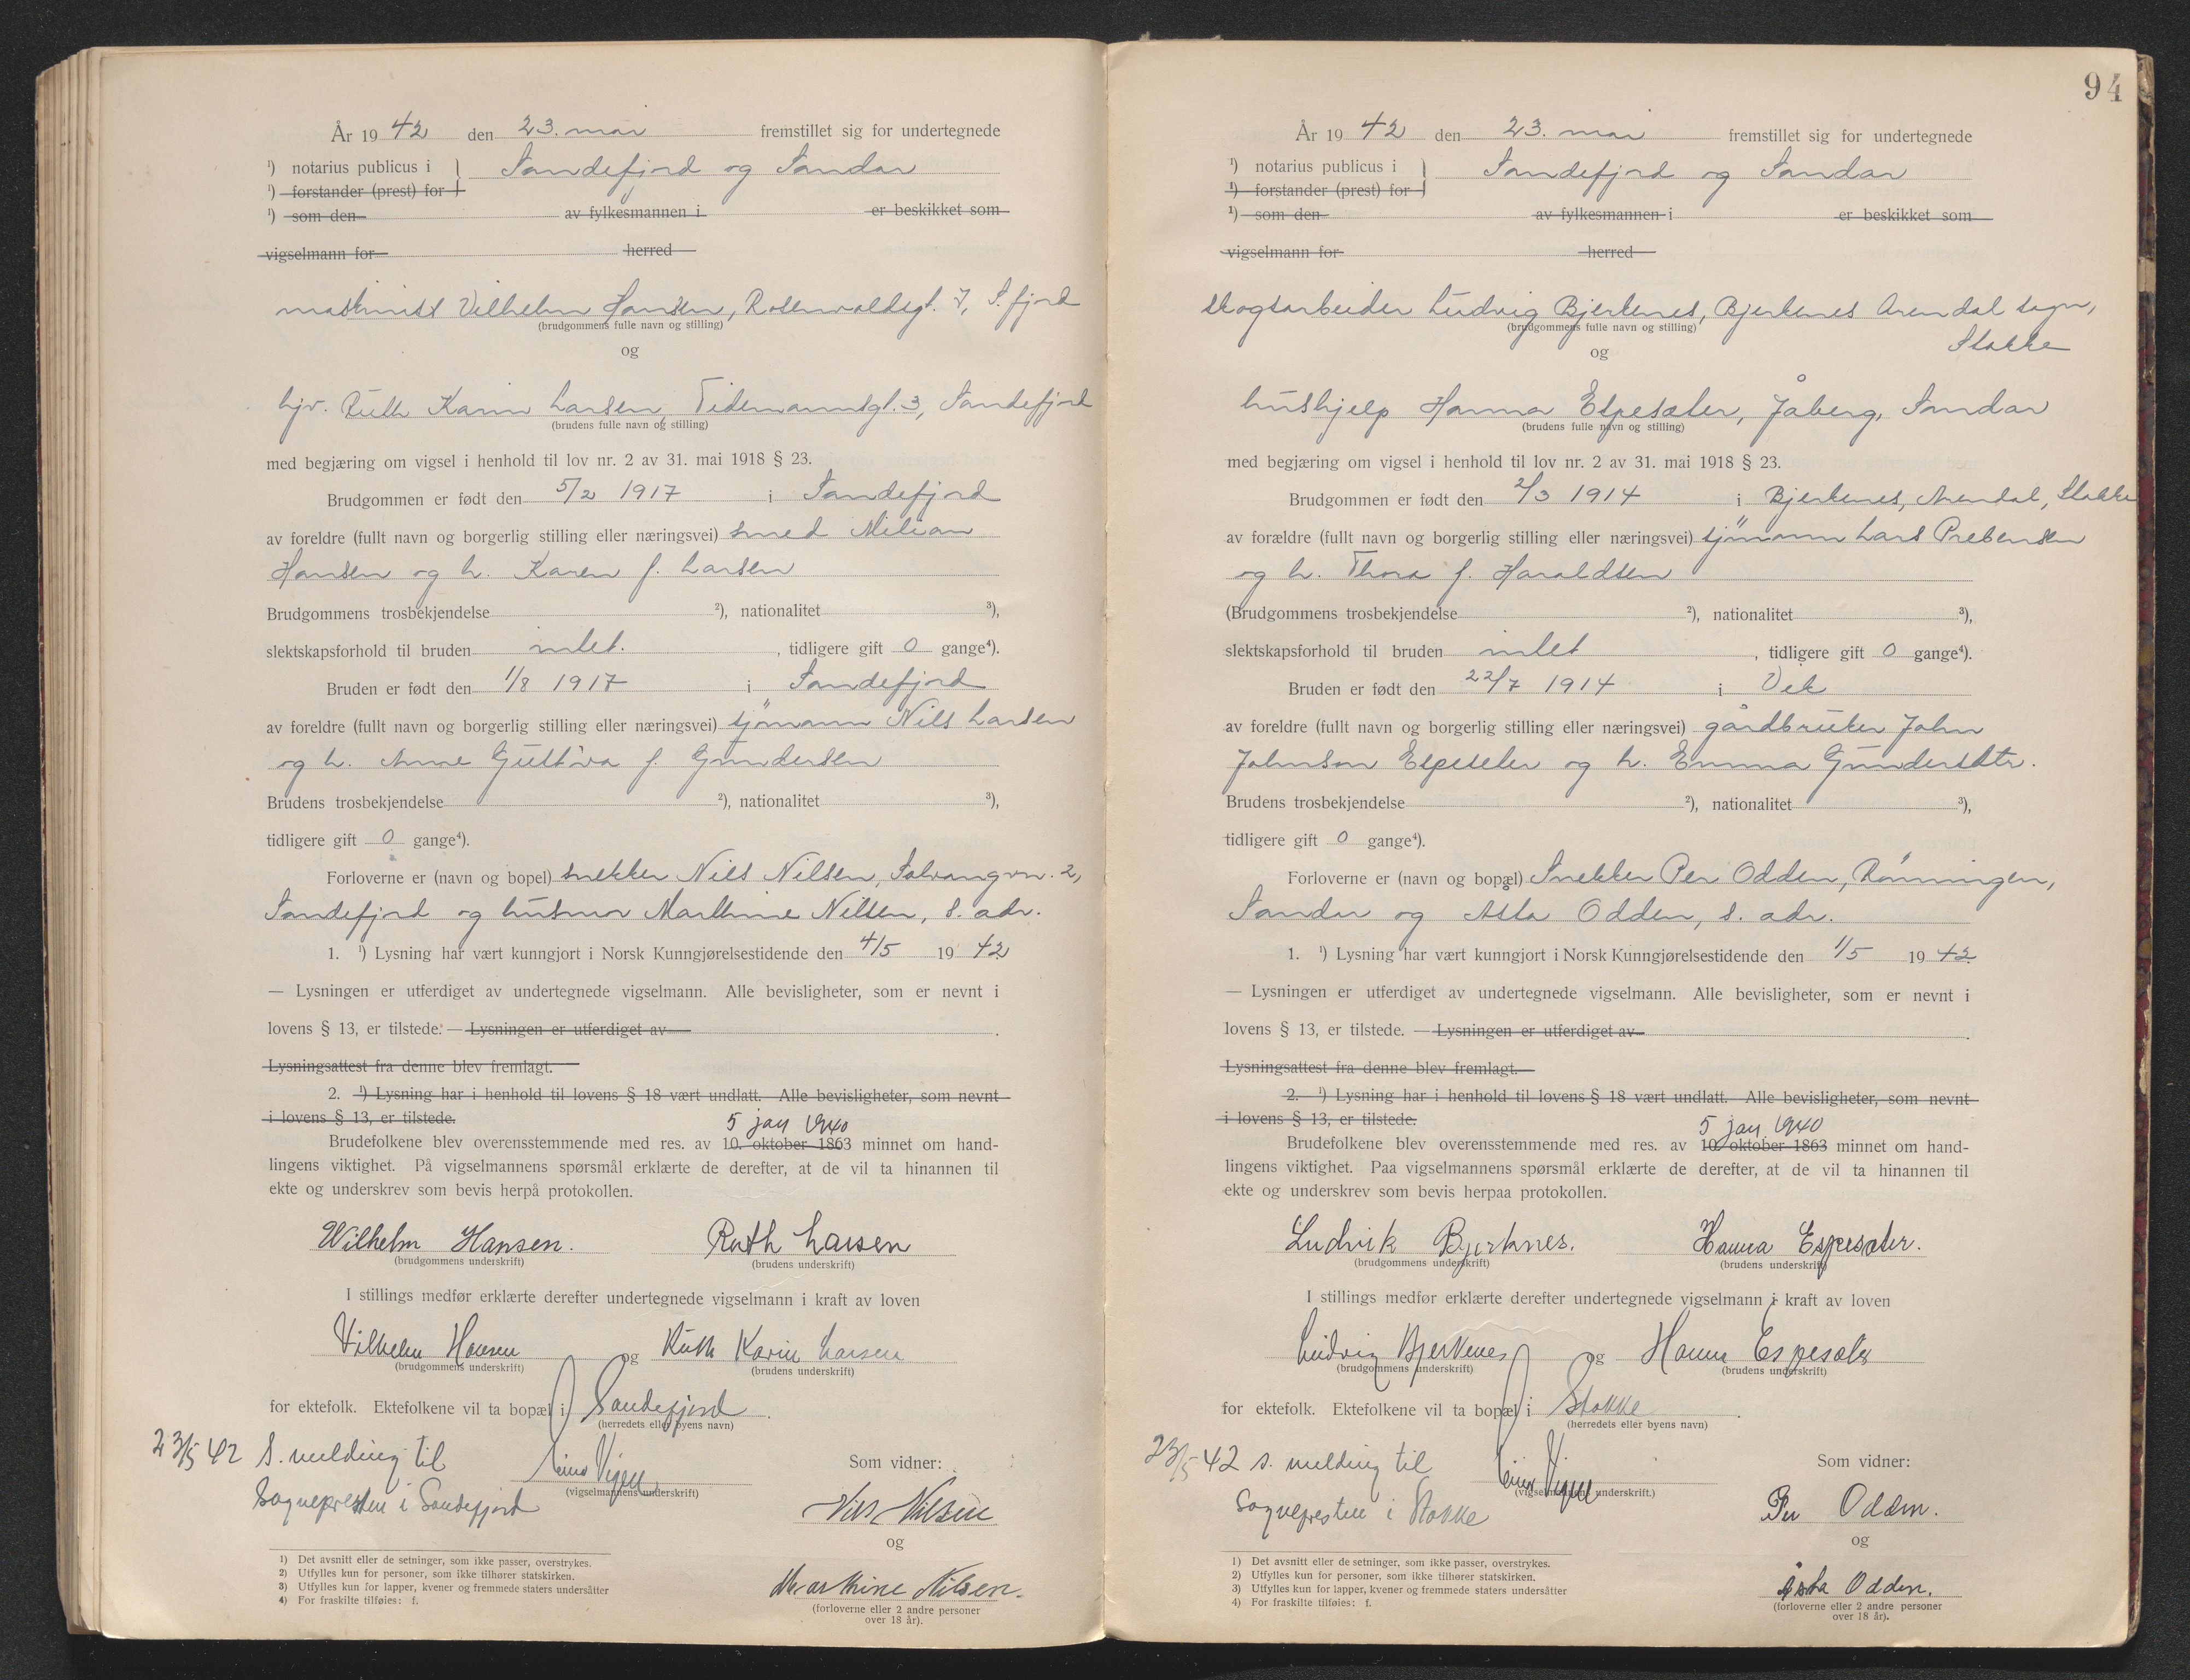 År 1942 den 23. mai fremstillet sig for undertegnede
¹) notarius publicus i } Sandefjord og Sandar
¹) forstander (prest) for
¹) som den av fylkesmannen i er beskikket som
vigselmann for herred
maskinist Vilhelm Hansen, Rosenvoldsgt. 7, S.fjord
(brudgommens fulle navn og stilling)
og
hjv. Ruth Karin Larsen, Tidemannsgt. 3, Sandefjord
(brudens fulle navn og stilling)
med begjæring om vigsel i henhold til lov nr. 2 av 31. mai 1918 § 23.
Brudgommen er født den 5/2 1917 i Sandefjord
av foreldre (fullt navn og borgerlig stilling eller næringsvei) smed Milian
Hansen og h. Karen f. Larsen
Brudgommens trosbekjendelse ²), nationalitet ³),
slektskapsforhold til bruden intet. , tidligere gift 0 gange⁴).
Bruden er født den 1/8 1917 i Sandefjord
av foreldre (fullt navn og borgerlig stilling eller næringsvei) sjömann Nils Larsen
og h. Anne f. Gundersen
Brudens trosbekjendelse ²), nationalitet ³),
tidligere gift 0 gange⁴).
Forloverne er (navn og bopel) snekker Nils Nilsen, Solvangvn. 2,
Sandefjord og husmor Marthine Nilsen, s. adr.
1. ¹) Lysning har vært kunngjort i Norsk Kunngjørelsestidende den 4/5 1942
— Lysningen er utferdiget av undertegnede vigselmann. Alle bevisligheter, som er nevnt i
lovens § 13, er tilstede. — Lysningen er utferdiget av .
Lysningsattest fra denne blev fremlagt.
2. ¹) Lysning har i henhold til lovens § 18 vært undlatt. Alle bevisligheter, som nevnt
i lovens § 13, er tilstede.
5 jan 1940
Brudefolkene blev overensstemmende med res. av 10. oktober 1863 minnet om hand-
lingens viktighet. På vigselmannens spørsmål erklærte de derefter, at de vil ta hinannen til
ekte og underskrev som bevis herpå protokollen.
Wilhelm Hansen. Ruth Larsen
(brudgommens underskrift) (brudens underskrift)
I stillings medfør erklærte derefter undertegnede vigselmann i kraft av loven
Vilhelm Hansen og Ruth Karin Larsen
(brudgommens underskrift) (brudens underskrift)
for ektefolk. Ektefolkene vil ta bopæl i Sandefjord .
(herredets eller byens navn)
23/5 42 S. melding til
Sognepresten i Sandefjord
(vigselmannens underskrift)
Som vidner:
Nils Nilsen
og
Marthine Nilsen.
(forloverne eller 2 andre personer
over 18 år).
1) Det avsnitt eller de setninger, som ikke passer, overstrykes.
2) Utfylles kun for personer, som ikke tilhører statskirken.
3) Utfylles kun for lapper, kvener og fremmede staters undersåtter
4) For fraskilte tilføies: f.
94
År 1942 den 23. mai fremstillet sig for undertegnede
¹) notarius publicus i } Sandefjord og Sandar
¹) forstander (prest) for
¹) som den av fylkesmannen i er beskikket som
vigselmann for herred
skogsarbeider Ludvig Bjerkenes, Bjerkenes Arendal sogn,
Stokke
(brudgommens fulle navn og stilling)
og
hushjelp Hanna Espesæter, Jåberg, Sandar
(brudens fulle navn og stilling)
med begjæring om vigsel i henhold til lov nr. 2 av 31. mai 1918 § 23.
Brudgommen er født den 2/3 1914 i Bjerkenes, Arendal, Stokke
av forældre (fullt navn og borgerlig stilling eller næringsvei) sjömann Lars Prebensen
og h. Thora f. Haraldsen
(Brudgommens trosbekjendelse ²), nationalitet ³),
slektskapsforhold til bruden intet , tidligere gift 0 gange⁴).
Bruden er født den 22/7 1914 i Vik
av foreldre (fullt navn og borgerlig stilling eller næringsvei) gårdbruker John
Johnson Espeseter og h. Emma Gundersdtr.
Brudens trosbekjendelse ²), nationalitet ³),
tidligere gift 0 gange⁴).
Forloverne er (navn og bopæl) Snekker Per Odden, Rönningen,
Sandar og Asta Odden, s. adr.
1. ¹) Lysning har vært kunngjort i Norsk Kunngjørelsestidende den 1/5 1942
— Lysningen er utferdiget av undertegnede vigselmann. Alle bevisligheter, som er nevnt i
lovens § 13, er tilstede. — Lysningen er utferdiget av .
Lysningsattest fra denne blev fremlagt.
2. ¹) Lysning har i henhold til lovens § 18 vært undlatt. Alle bevisligheter, som nevnt
i lovens § 13, er tilstede.
5 jan 1940
Brudefolkene blev overensstemmende med res. av 10 oktober 1863 minnet om hand-
lingens viktighet. Paa vigselmannens spørsmål erklærte de derefter, at de vil ta hinannen til
ekte og underskrev som bevis herpaa protokollen.
Ludvik Bjerknes. Hanna Espesæter.
(brudgommens underskrift) (brudens underskrift)
I stillings medfør erklærte derefter undertegnede vigselmann i kraft av loven
Ludvig Bjerkenes og Hanna Espesæter
(brudgommens underskrift) (brudens underskrift)
for ektefolk. Ektefolkene vil ta bopæl i Stokke .
(herredets eller byens navn)
23/5 42 s. melding til
Sognepresten i Stokke
(vigselmannens underskrift.)
Som vidner:
Per Odden.
og
Asta Odden.
(forloverne eller 2 andre personer
over 18 år).
1) Det avsnitt eller de setninger, som ikke passer, overstrykes.
2) Utfylles kun for personer, som ikke tilhører statskirken.
3) Utfylles kun for lapper, kvener og fremmede staters undersåtter
4) For fraskilte tilføies: f.